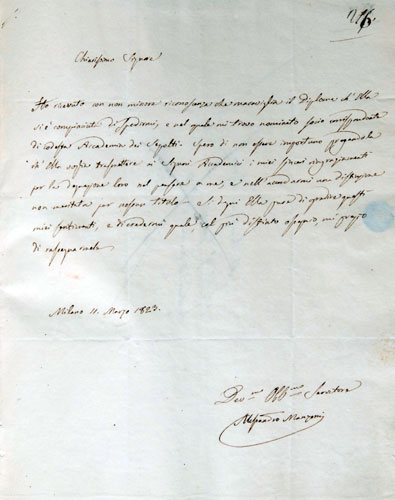 Chiarissimo Signore
Ho ricevuto con non minore riconoscenza che maraviglia il Diploma ch'Ella
si è compiaciuta di spedirmi, e nel quale mi trovo nominato socio corrispondente
di codesta Accademia dei Sepolti. Spero di non essere importuno pregandola
ch'Ella voglia trasmettere ai Signori Accademici i miei sinceri ringraziamenti
per la degnazione loro nel pensare a me, e nell'accordarmi una distinzione
non meritata per nessun titolo. E si degni Ella pure di gradire questi
miei sentimenti, e di credermi quale col più distinto ossequio, mi pregio
di rassegnarmele
Milano 11. Marzo 1823.
Dev.mo Obb.mo Servitore
Alessandro Manzoni